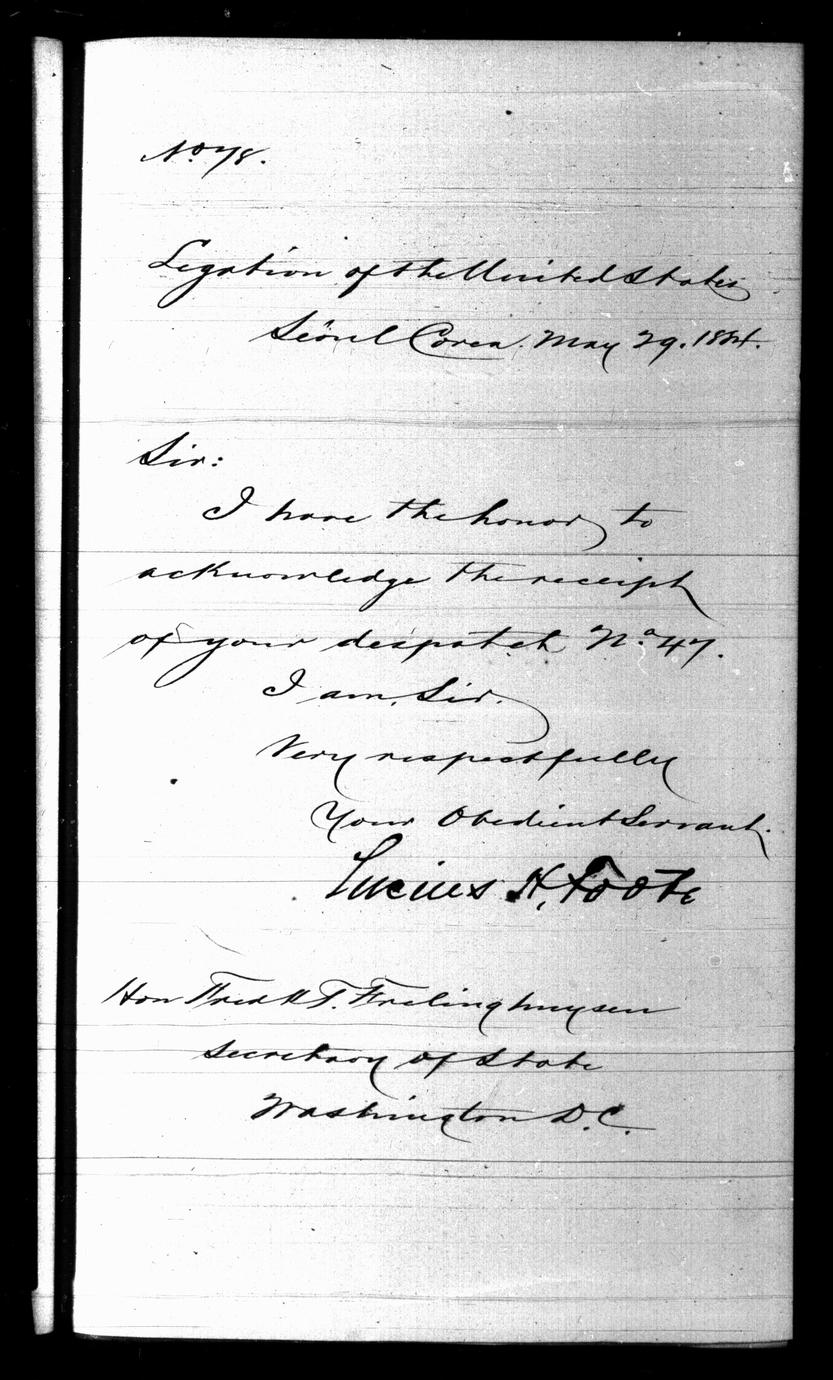 No 78.
Legation of the United States
Seöul Corea. May 29. 1884.
Sir:
I have the honor to
acknowledge the receipt
of your despatch No 47.
I am, Sir.
Very respectfully
Your Obedient Servant.
Lucius H. Foote
Hon Fredk T. Frelinghuysen
Secretary of State
Washington D.C.